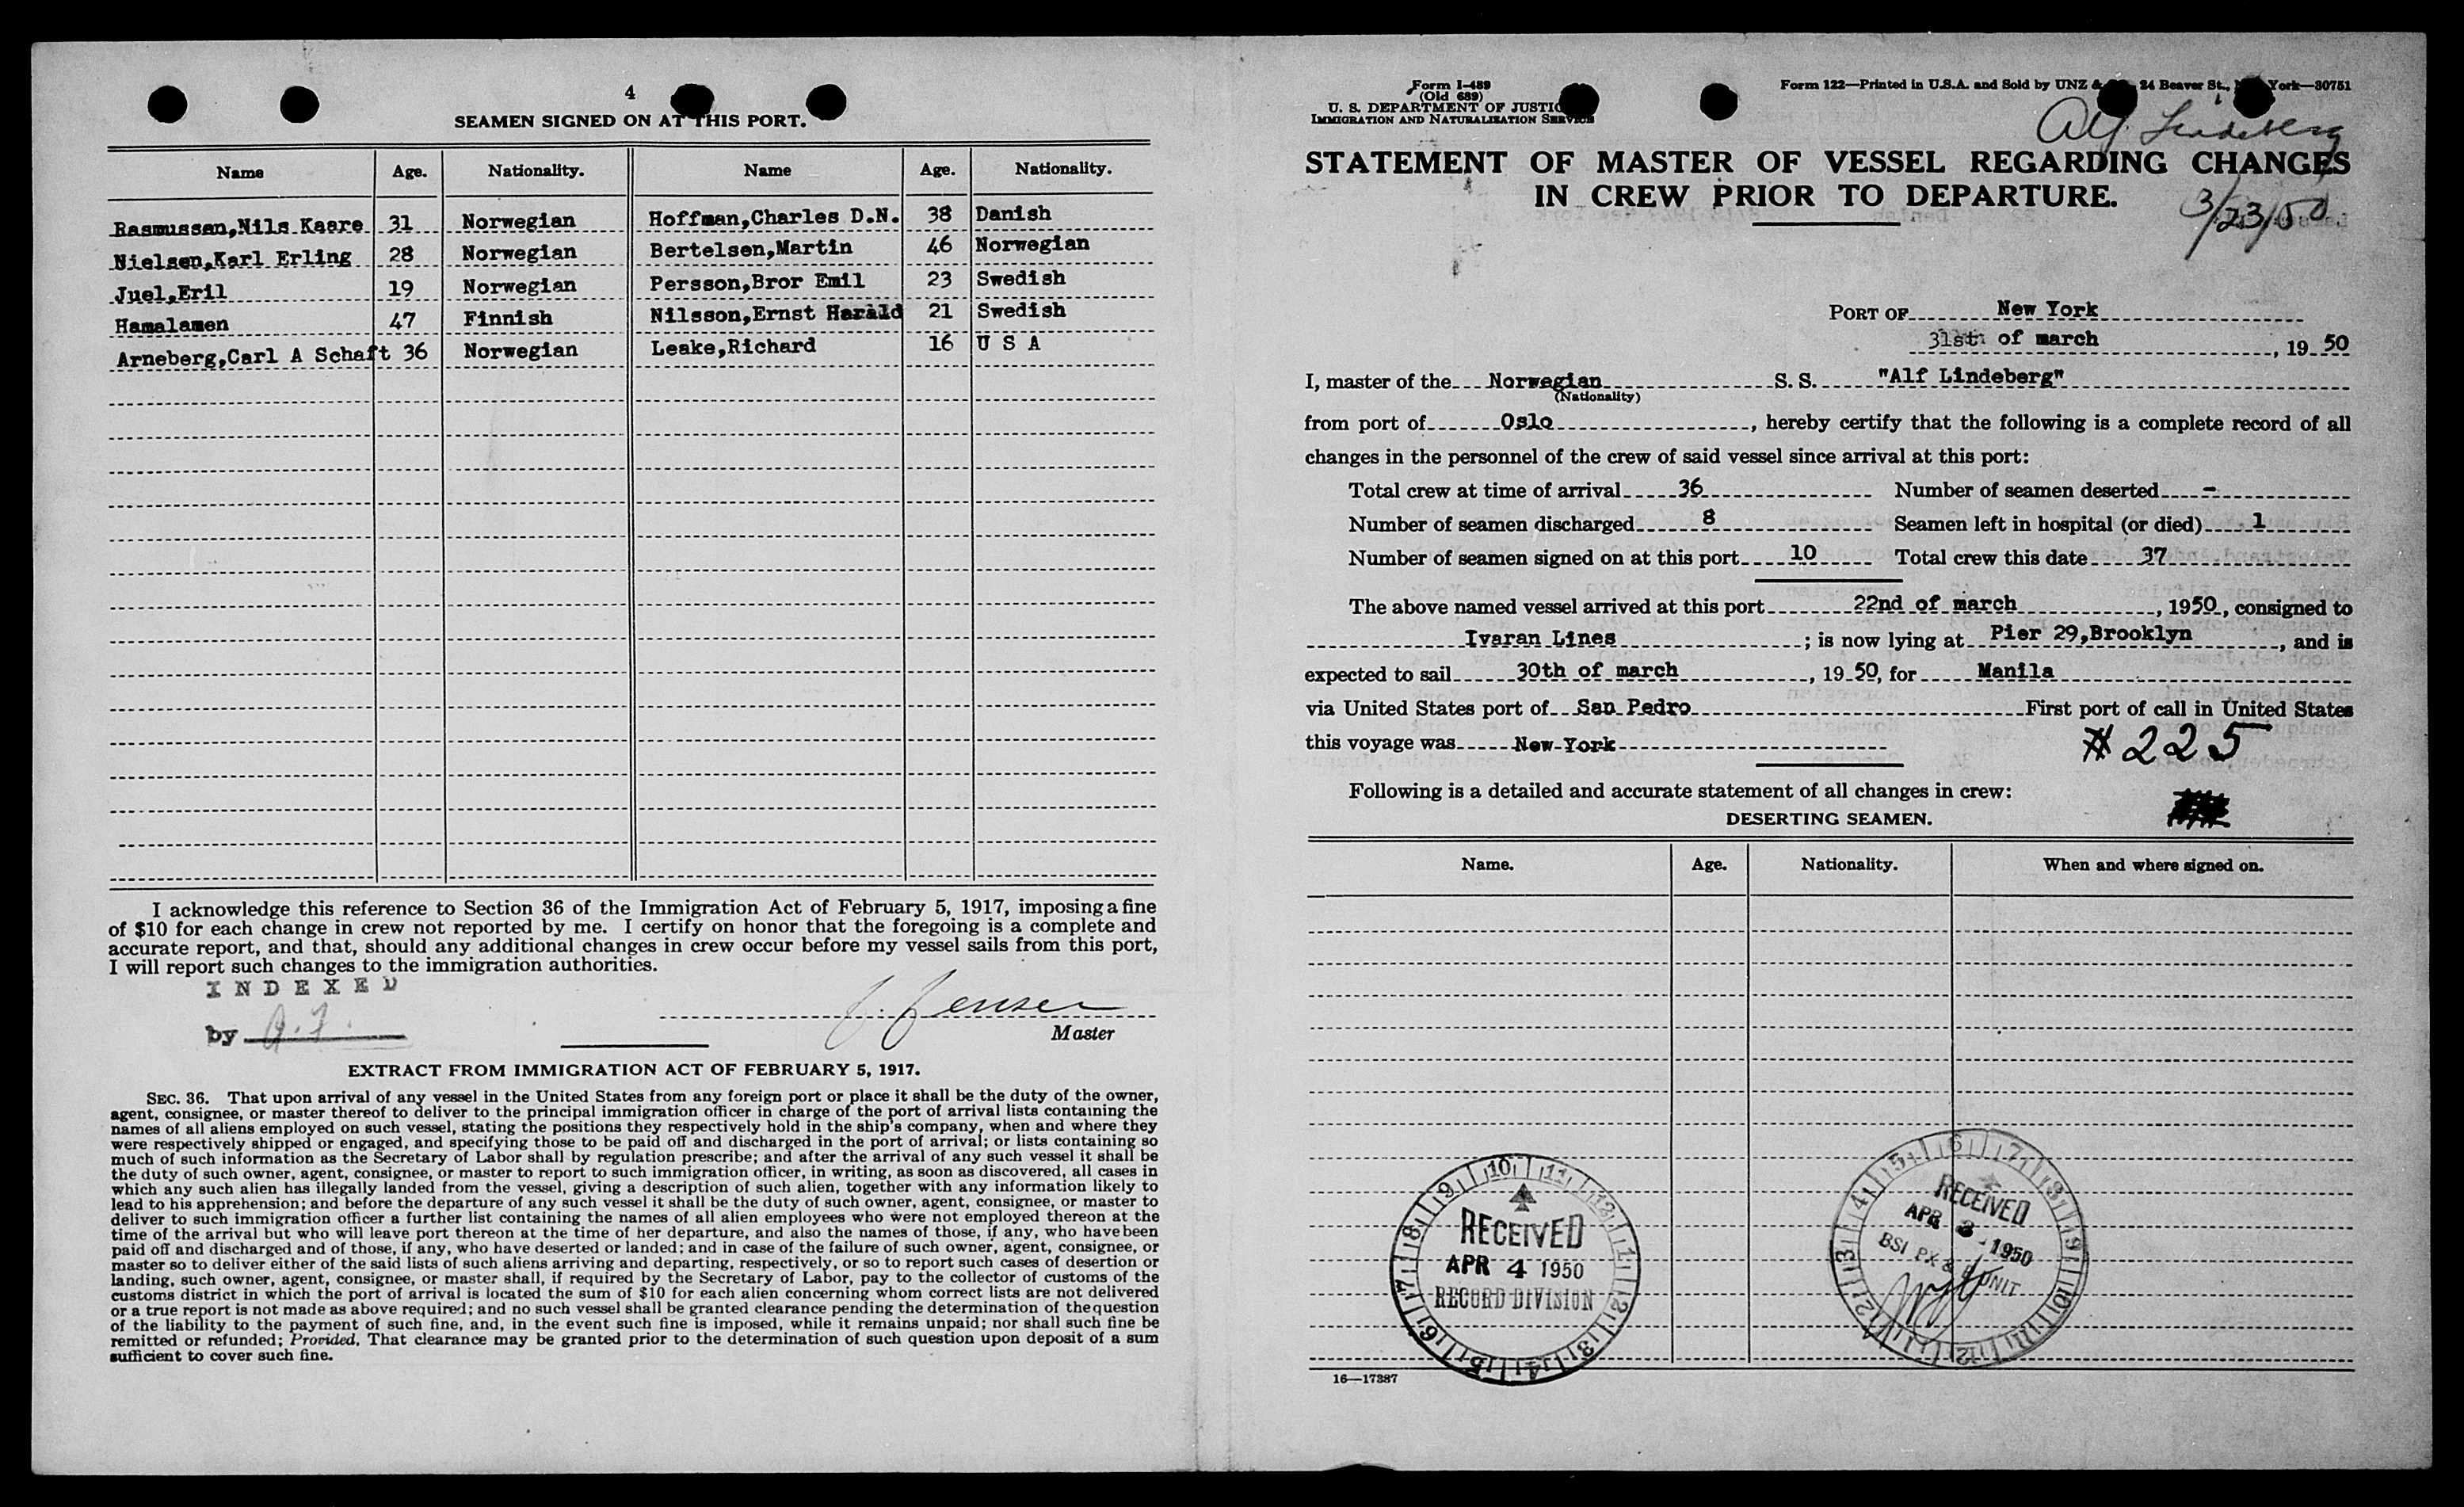 4
SEAMEN SIGNED ON AT THIS PORT.
Name Age. Nationality. Name Age. Nationality.
Rasmussen,Nils Kaare 31 Norwegian Hoffman,Charles D.N. 38 Danish
Nielsen,Karl Erling 28 Norwegian Bertelsen,Martin 46 Norwegian
Juel,Eril 19 Norwegian Persson,Bror Emil 23 Swedish
Hamalamen 47 Finnish Nilsson,Ernst Harald 21 Swedish
Arneberg,Carl A Schaft 36 Norwegian Leake,Richard 16 U S A
I acknowledge this reference to Section 36 of the Immigration Act of February 5, 1917, imposing a fine
of $10 for each change in crew not reported by me. I certify on honor that the foregoing is a complete and
accurate report, and that, should any additional changes in crew occur before my vessel sails from this port,
I will report such changes to the immigration authorities.
INDEXED
by
J. Jensen
Master
EXTRACT FROM IMMIGRATION ACT OF FEBRUARY 5, 1917.
SEC. 36. That upon arrival of any vessel in the United States from any foreign port or place it shall be the duty of the owner,
agent, consignee, or master thereof to deliver to the principal immigration officer in charge of the port of arrival lists containing the
names of all aliens employed on such vessel, stating the positions they respectively hold in the ship's company, when and where they
were respectively shipped or engaged, and specifying those to be paid off and discharged in the port of arrival; or lists containing so
much of such information as the Secretary of Labor shall by regulation prescribe; and after the arrival of any such vessel it shall be
the duty of such owner, agent, consignee, or master to report to such immigration officer, in writing, as soon as discovered, all cases in
which any such alien has illegally landed from the vessel, giving a description of such alien, together with any information likely to
lead to his apprehension; and before the departure of any such vessel it shall be the duty of such owner, agent, consignee, or master to
deliver to such immigration officer a further list containing the names of all alien employees who were not employed thereon at the
time of the arrival but who will leave port thereon at the time of her departure, and also the names of those, if any, who have been
paid off and discharged and of those, if any, who have deserted or landed; and in case of the failure of such owner, agent, consignee, or
master so to deliver either of the said lists of such aliens arriving and departing, respectively, or so to report such cases of desertion or
landing, such owner, agent, consignee, or master shall, if required by the Secretary of Labor, pay to the collector of customs of the
customs district in which the port of arrival is located the sum of $10 for each alien concerning whom correct lists are not delivered
or a true report is not made as above required; and no such vessel shall be granted clearance pending the determination of the question
of the liability to the payment of such fine, and, in the event such fine is imposed, while it remains unpaid; nor shall such fine be
remitted or refunded; Provided, That clearance may be granted prior to the determination of such question upon deposit of a sum
sufficient to cover such fine.
Form I-489
(Old 689)
U. S. DEPARTMENT OF JUSTICE
IMMIGRATION AND NATURALIZATION SERVICE
Form 122—Printed in U.S.A. and Sold by UNZ & 24 Beaver St., York—30751
Alf. Lindeberg
STATEMENT OF MASTER OF VESSEL REGARDING CHANGES
IN CREW PRIOR TO DEPARTURE.
3/23/50
PORT OF New York
31st of march, 19 50
I, master of the Norwegian S. S. "Alf Lindeberg"
(Nationality)
from port of Oslo, hereby certify that the following is a complete record of all
changes in the personnel of the crew of said vessel since arrival at this port:
Total crew at time of arrival 36 Number of seamen deserted -
Number of seamen discharged 8 Seamen left in hospital (or died) 1
Number of seamen signed on at this port 10 Total crew this date 37
The above named vessel arrived at this port 22nd of march, 1950, consigned to
Ivaran Lines; is now lying at Pier 29,Brooklyn, and is
expected to sail 30th of march, 19 50, for Manila
via United States port of San Pedro First port of call in United States
this voyage was New York
#225
Following is a detailed and accurate statement of all changes in crew:
DESERTING SEAMEN.
Name. Age. Nationality. When and where signed on.
RECEIVED
APR 4 1950
RECORD DIVISION
RECEIVED
APR 3 - 1950
BSI PX & UNIT
16—17387